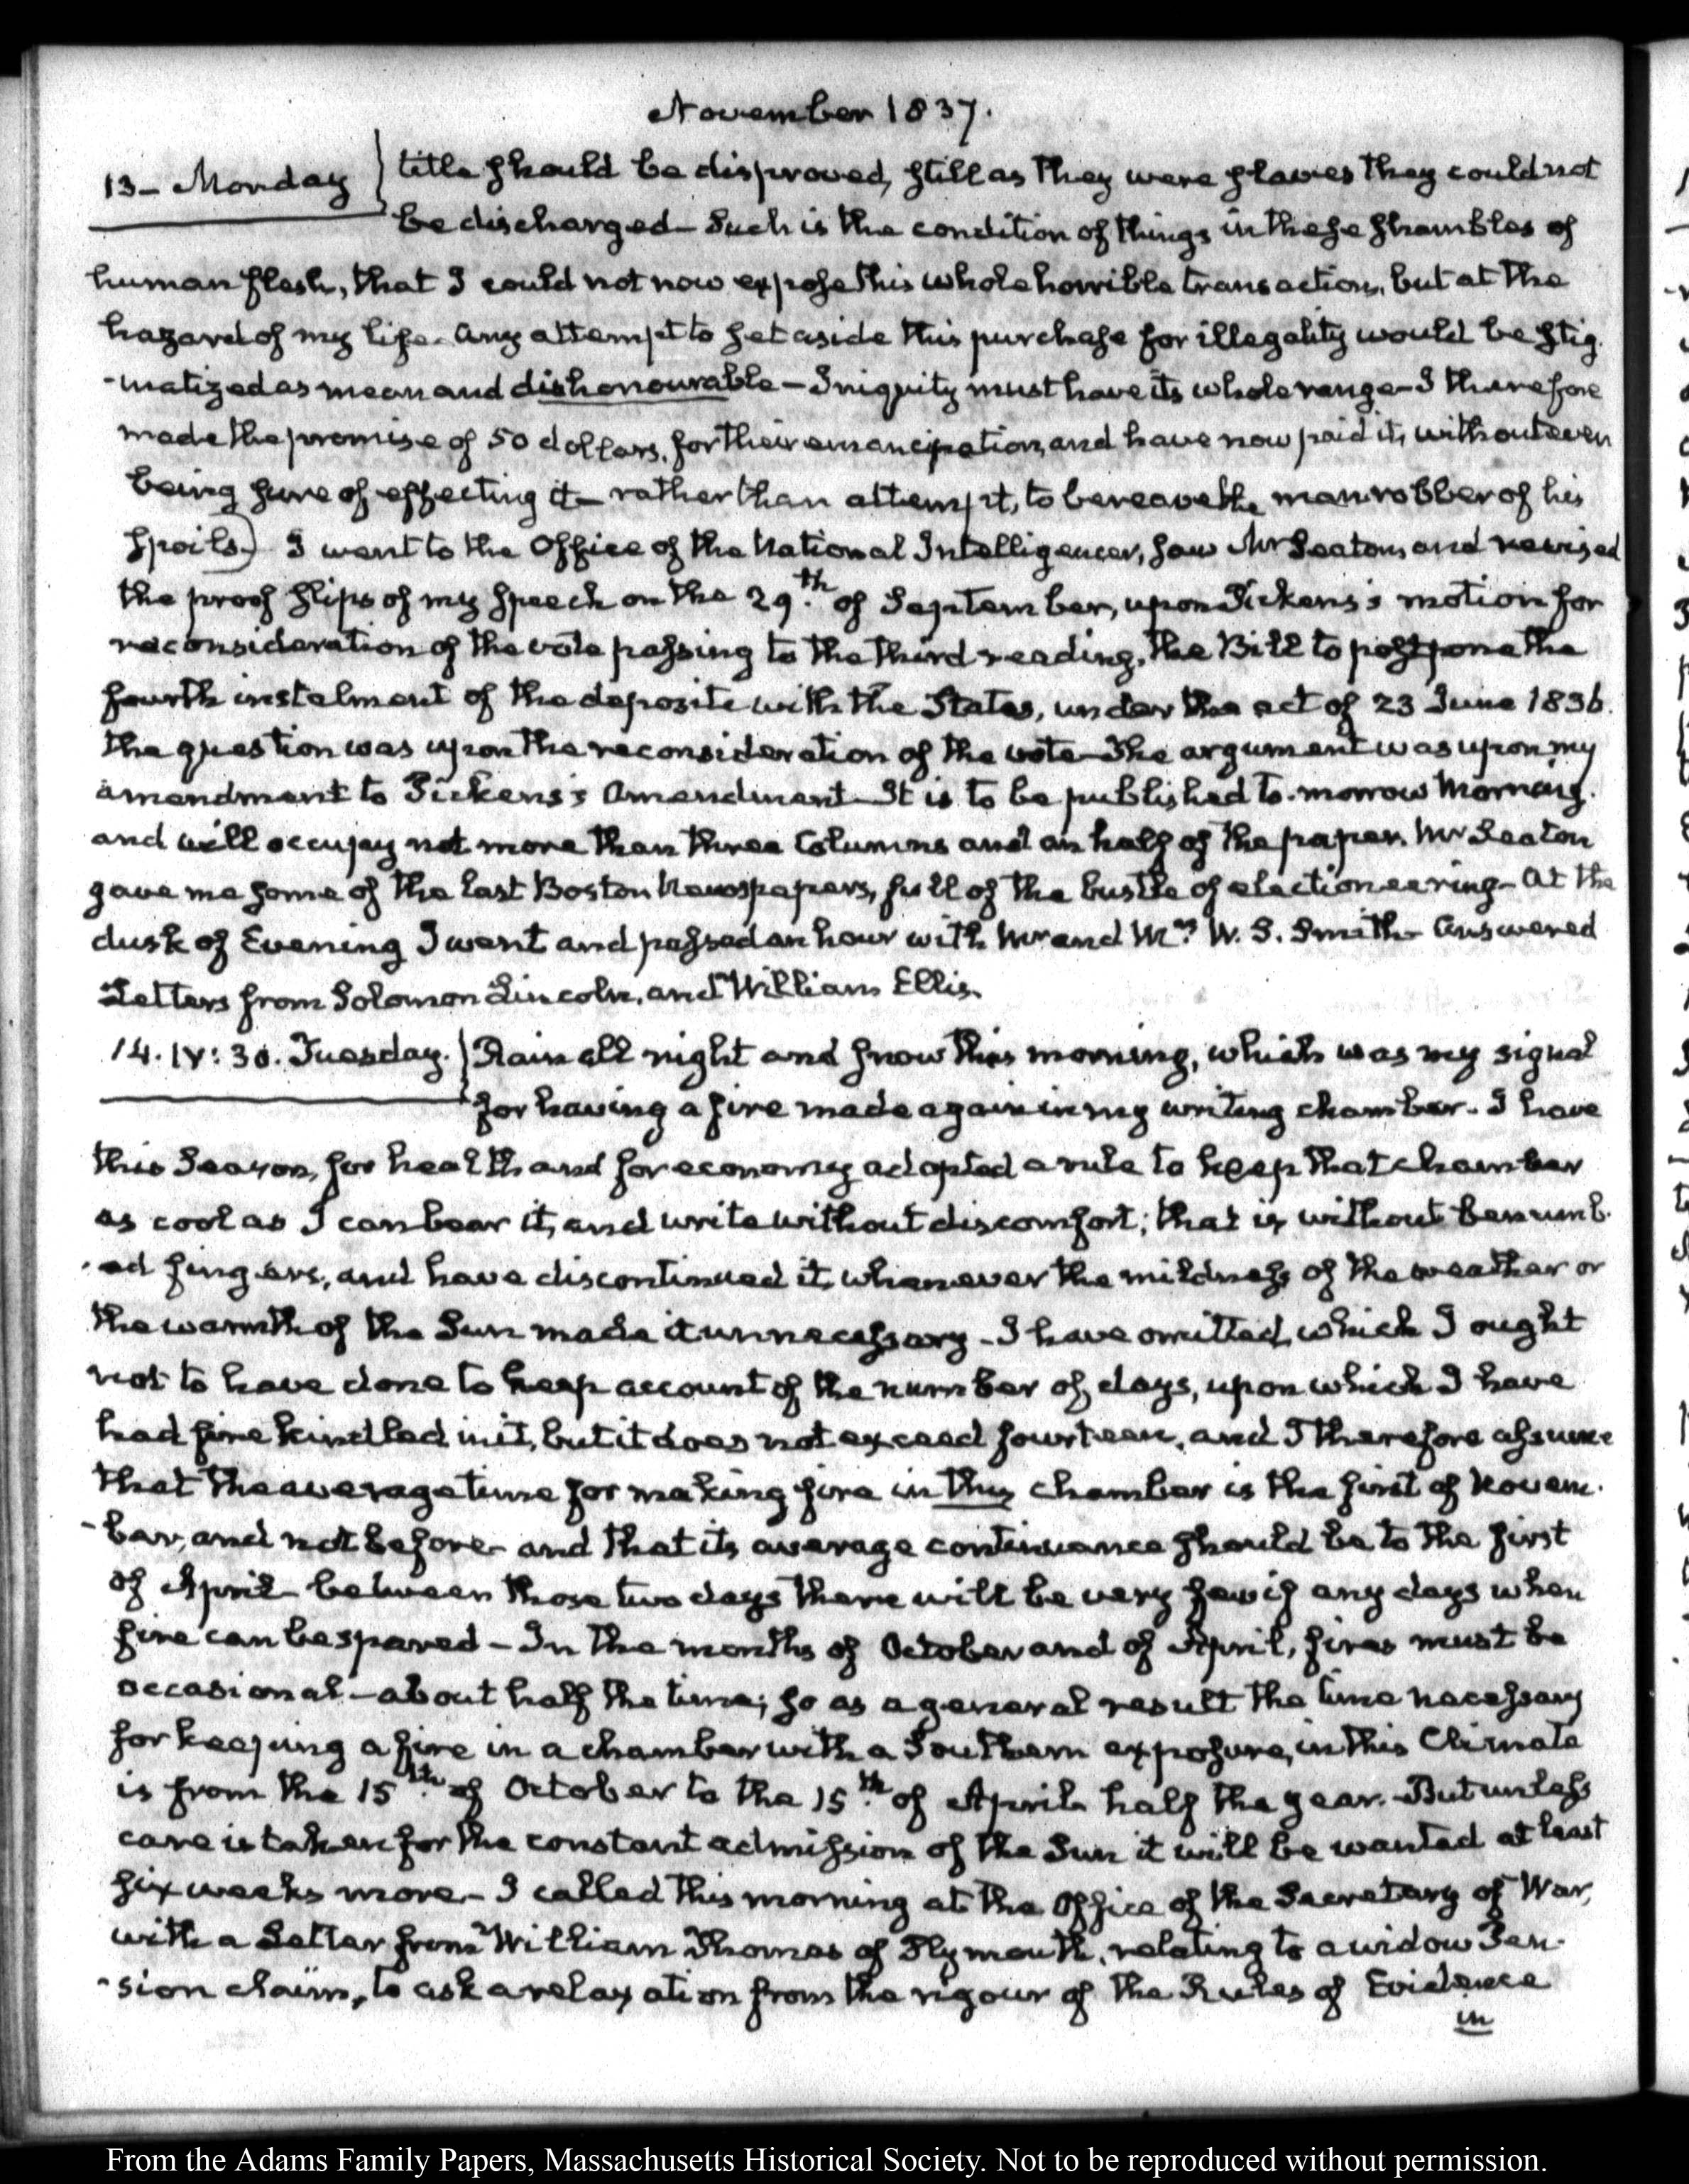 November 1837.
13- Monday } title should be disproved, still as they were slaves they could not
be discharged- Such is the condition of things in these shambles of
human flesh, that I could not now expose this whole horrible transaction, but at the
hazard of my life. Any attempt to set aside this purchase for illegality would be stig-
-matized as mean and dishonourable - Iniquity must have its whole range- I therefore
made the promise of 50 dollars, for their emancipation, and have now paid it, without even
being sure of effecting it- rather than attempt, to bereave the man-robber of his
spoils.) I went to the Office of the National Intelligencer, saw Mr Seaton, and revised
the proof slips of my speech on the 29.th of September, upon Pickens's motion for
reconsideration of the vote passing to the third reading, the Bill to postpone the
fourth instalment of the deposite with the States, under the act of 23 June 1836.
the question was upon the reconsideration of the vote- The argument was upon my
amendment to Pickens's Amendment- It is to be published to-morrow Morning.
and will occupy not more than three Columns and an half of the paper. Mr Seaton
gave me some of the last Boston Newspapers, full of the bustle of electioneering- At the
dusk of Evening I went and passed an hour with Mr and Mrs W. S. Smith- Answered
Letters from Solomon Lincoln, and William Ellis.
14. IV: 30. Tuesday. } Rain all night and snow this morning, which was my signal
for having a fire made again in my writing chamber. I have
this Season, for health and for economy adopted a rule to keep that chamber
as cool as I can bear it, and write without discomfort; that is, without benumb-
-ed fingers, and have discontinued it, whenever the mildness of the weather or
the warmth of the Sun made it unnecessary - I have omitted, which I ought
not to have done to keep account of the number of days, upon which I have
had fire kindled in it, but it does not exceed fourteen, and I therefore assume
that the average time for making fire in this chamber is the first of Novem-
-ber, and not before- and that its average continuance should be to the first
of April- between those two days there will be very few if any days when
fire can be spared - In the months of October and of April, fires must be
occasional - about half the time; so as a general result the time necessary
for keeping a fire in a chamber with a Southern exposure, in this Climate
is from the 15th of October to the 15th of April- half the year. But unless
care is taken for the constant admission of the Sun it will be wanted at least
six weeks more- I called this morning at the Office of the Secretary of War,
with a Letter from William Thomas of Plymouth, relating to a widow Pen-
-sion claim, to ask a relaxation from the rigour of the Rules of Evidence
in
From the Adams Family Papers, Massachusetts Historical Society. Not to be reproduced without permission.